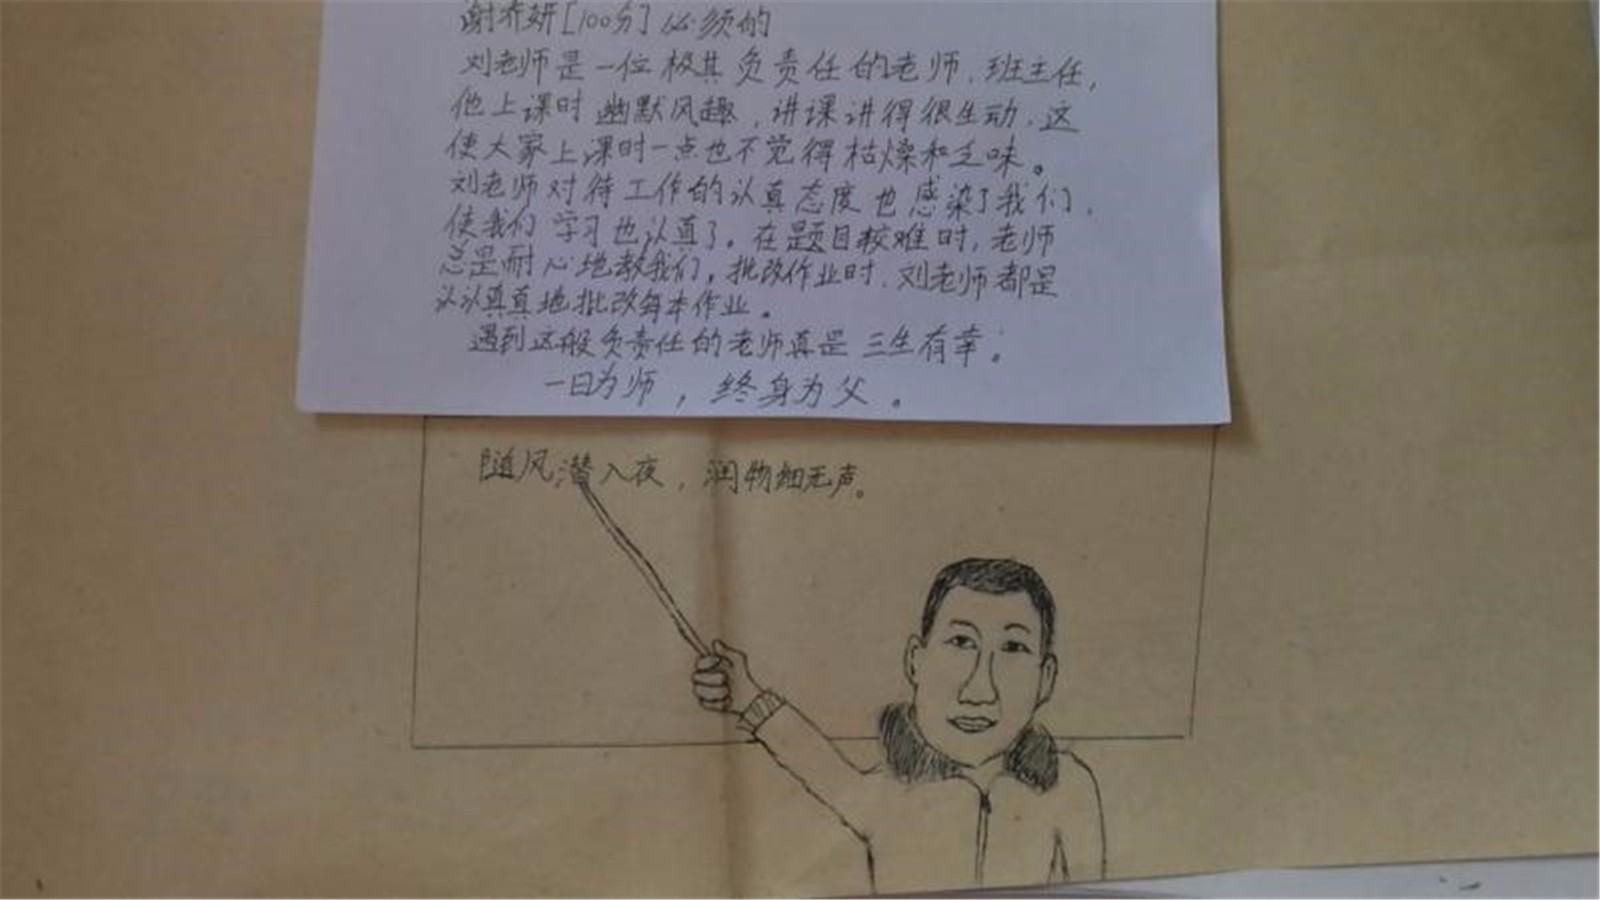 谢乔妍[100分]必须的
刘老师是一位极其负责任的老师、班主任,
他上课时幽默风趣,讲课讲得很生动,这
使大家上课时一点也不觉得枯燥和乏味。
刘老师对待工作的认真态度也感染了我们,
使我们学习也认真了。在题目较难时,老师
总是耐心地教我们,批改作业时,刘老师都是
认认真真地批改每本作业。
遇到这般负责任的老师真是三生有幸:
一日为师,终身为父。
随风潜入夜,润物细无声。